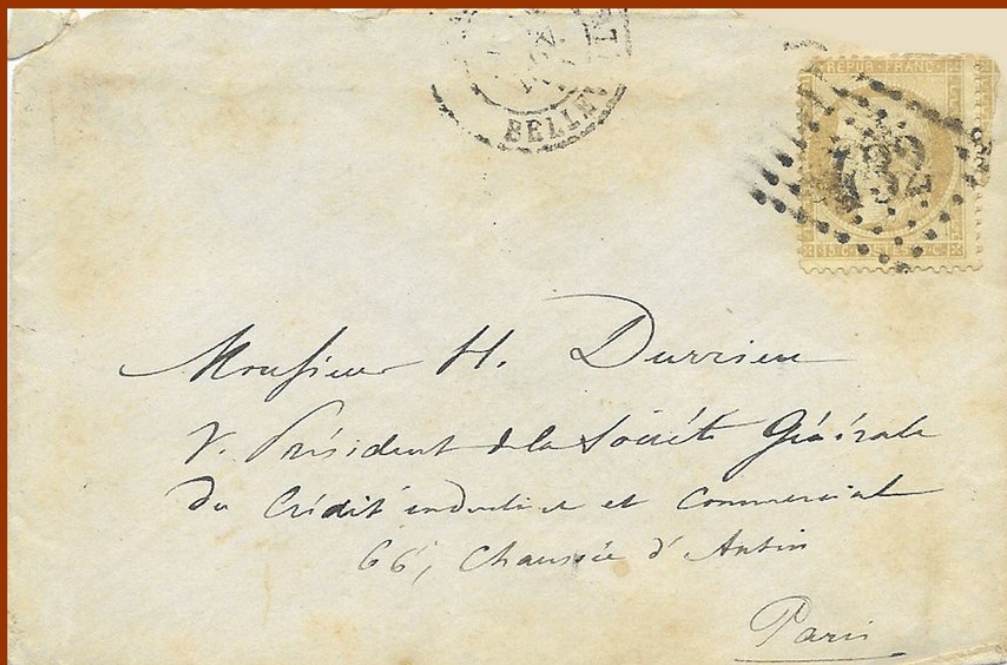 BELLE
REPUB · FRANC
432
15 C. POSTES 15 C.
Monsieur H. Durrieu
V. Président de la Société Générale
du Crédit industriel et Commercial
66, Chaussée d'Antin
Paris